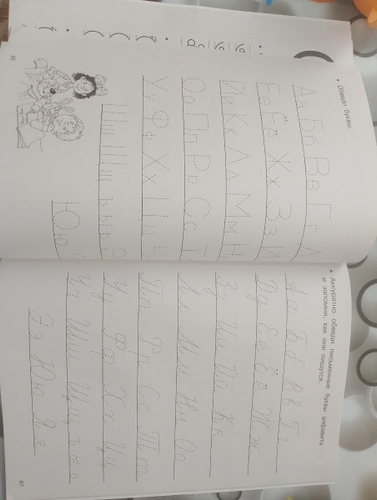 Обведи буквы.
Аа Бб Вв Гг Д
Ее Ёё Жж Зз И
Йй Кк Лл Мм Н
Оо Пп Рр Сс Т
У Фф Хх Цц
Шш Щщ ъ ы ь Э
Юю
Аккуратно обведи письменные буквы алфавита
и запомни, как они пишутся.
Аа Бб Вв Гг
Дд Ее Ёё Жж
Зз Ии Йй Кк
Лл Мм Нн Оо
Пп Рр Сс Тт
Уу Фф Хх Цц
Чч Шш Щщ ъ ы ь
Ээ Юю Яя
67